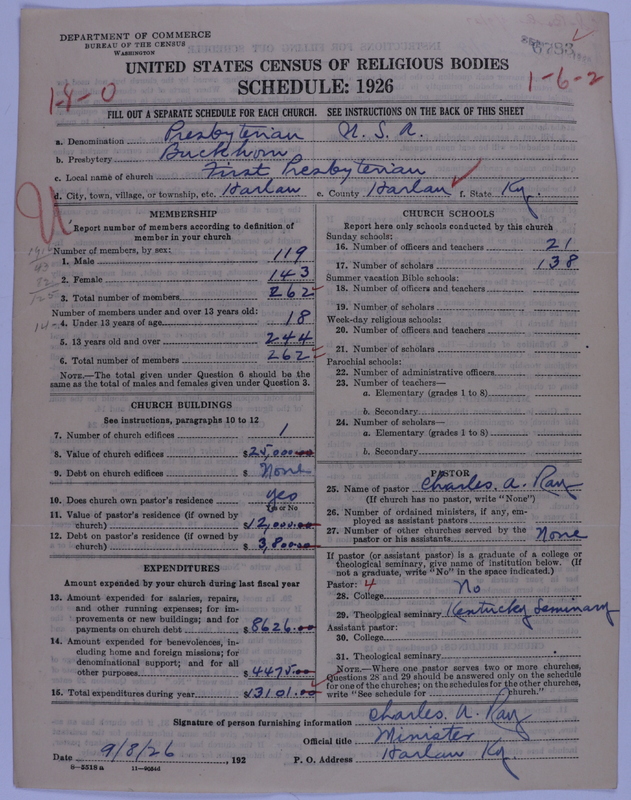 DEPARTMENT OF COMMERCE
BUREAU OF THE CENSUS
WASHINGTON
6783
UNITED STATES CENSUS OF RELIGIOUS BODIES
SCHEDULE: 1926
1-8-0
1-6-2
FILL OUT A SEPARATE SCHEDULE FOR EACH CHURCH. SEE INSTRUCTIONS ON THE BACK OF THIS SHEET
a. Denomination Presbyterian U. S. A.
b. Presbytery Buckhorn
c. Local name of church First Presbyterian
d. City, town, village, or township, etc. Harlan e. County Harlan f. State Ky.
MEMBERSHIP
Report number of members according to definition of
member in your church
Number of members, by sex:
1. Male 119
2. Female 143
3. Total number of members 262
Number of members under and over 13 years old:
14- 4. Under 13 years of age 18
5. 13 years old and over 244
6. Total number of members 262
NOTE.—The total given under Question 6 should be
same as the total of males and females given under Question 3.
CHURCH BUILDINGS
See instructions, paragraphs 10 to 12
7. Number of church edifices 1
8. Value of church edifices $25,000.00
9. Debt on church edifices $ None
10. Does church own pastor's residence yes
Yes or No
11. Value of pastor's residence (if owned by
church) $12,000.00
12. Debt on pastor's residence (if owned by
church) $3,800.00
EXPENDITURES
Amount expended by your church during last fiscal year
13. Amount expended for salaries, repairs,
and other running expenses; for im-
provements or new buildings; and for
payments on church debt $8626.00
14. Amount expended for benevolences, in-
cluding home and foreign missions; for
denominational support; and for all
other purposes $4475.00
15. Total expenditures during year $13101.00
CHURCH SCHOOLS
Report here only schools conducted by this church
Sunday schools:
16. Number of officers and teachers 21
17. Number of scholars 138
Summer vacation Bible schools:
18. Number of officers and teachers
19. Number of scholars
Week-day religious schools:
20. Number of officers and teachers
21. Number of scholars
Parochial schools:
22. Number of administrative officers
23. Number of teachers—
a. Elementary (grades 1 to 8)
b. Secondary
24. Number of scholars—
a. Elementary (grades 1 to 8)
b. Secondary
PASTOR
25. Name of pastor Charles. A. Ray
(If church has no pastor, write "None")
26. Number of ordained ministers, if any, em-
ployed as assistant pastors
27. Number of other churches served by the
pastor or his assistants None
If pastor (or assistant pastor) is a graduate of a college or
theological seminary, give name of institution below. (If
not a graduate, write "No" in the space indicated.)
Pastor: 4
28. College No
29. Theological seminary Kentucky Seminary
Assistant pastor:
30. College
31. Theological seminary
NOTE.—Where one pastor serves two or more churches,
Questions 28 and 29 should be answered only on the schedule
for one of the churches; on the schedules for the other churches,
write "See schedule for church."
Signature of person furnishing information Charles. A. Ray
Official title Minister
Date 9/8/26, 192 P. O. Address Harlan Ky.
8-5518 a